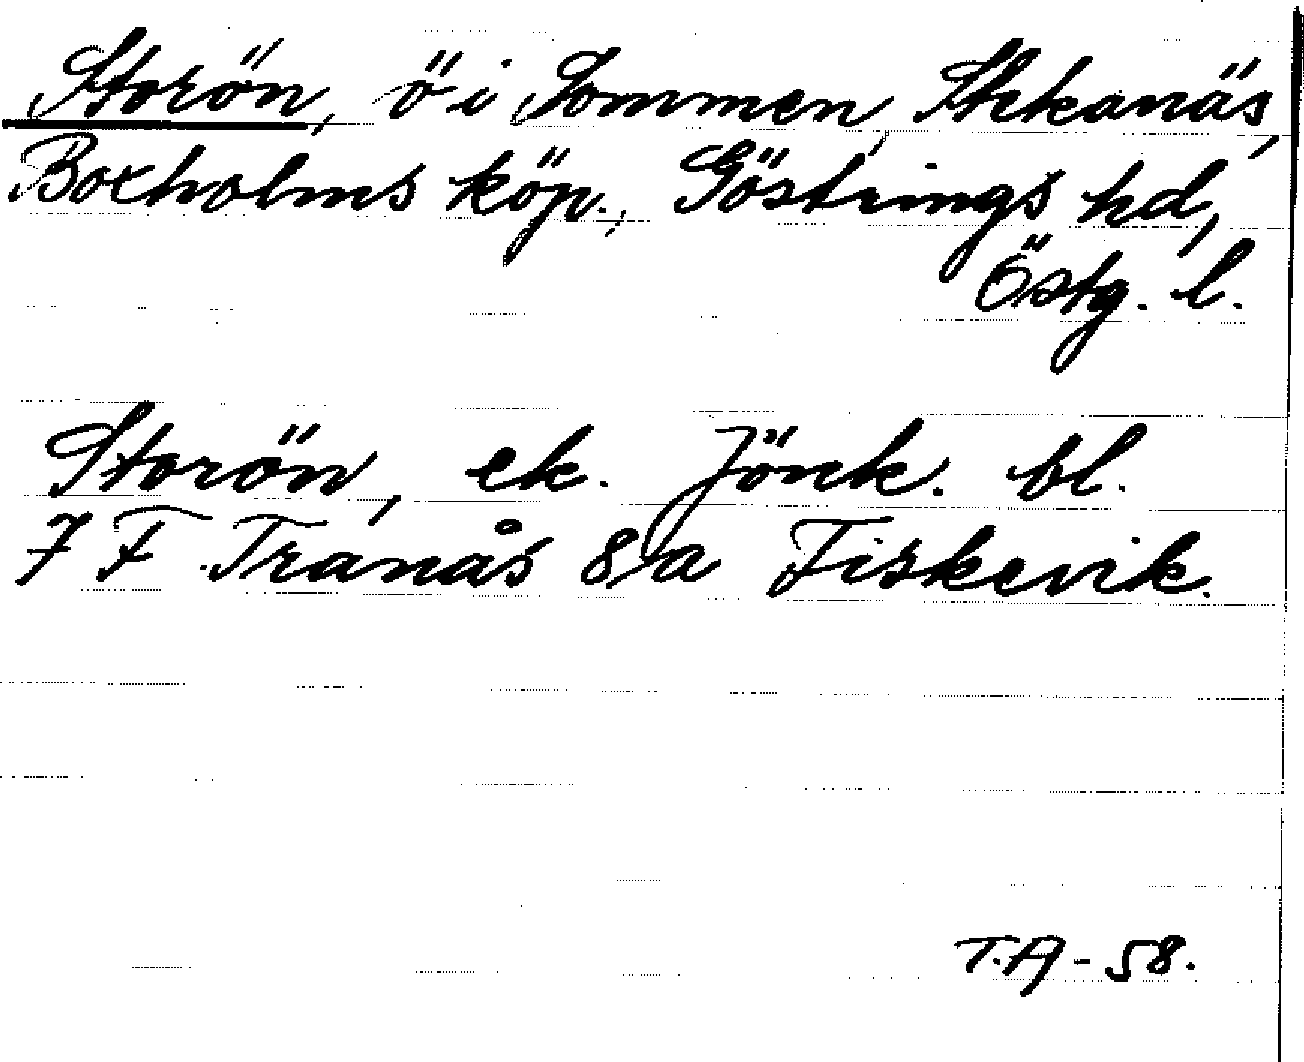 Storön, ö i Sommen, Stekanäs,
Boxholms köp., Göstrings hd,
Östg. l.
Storön, ek. Jönk. bl.
7 F Tranås 8 a Fiskevik.
T.A - 58.